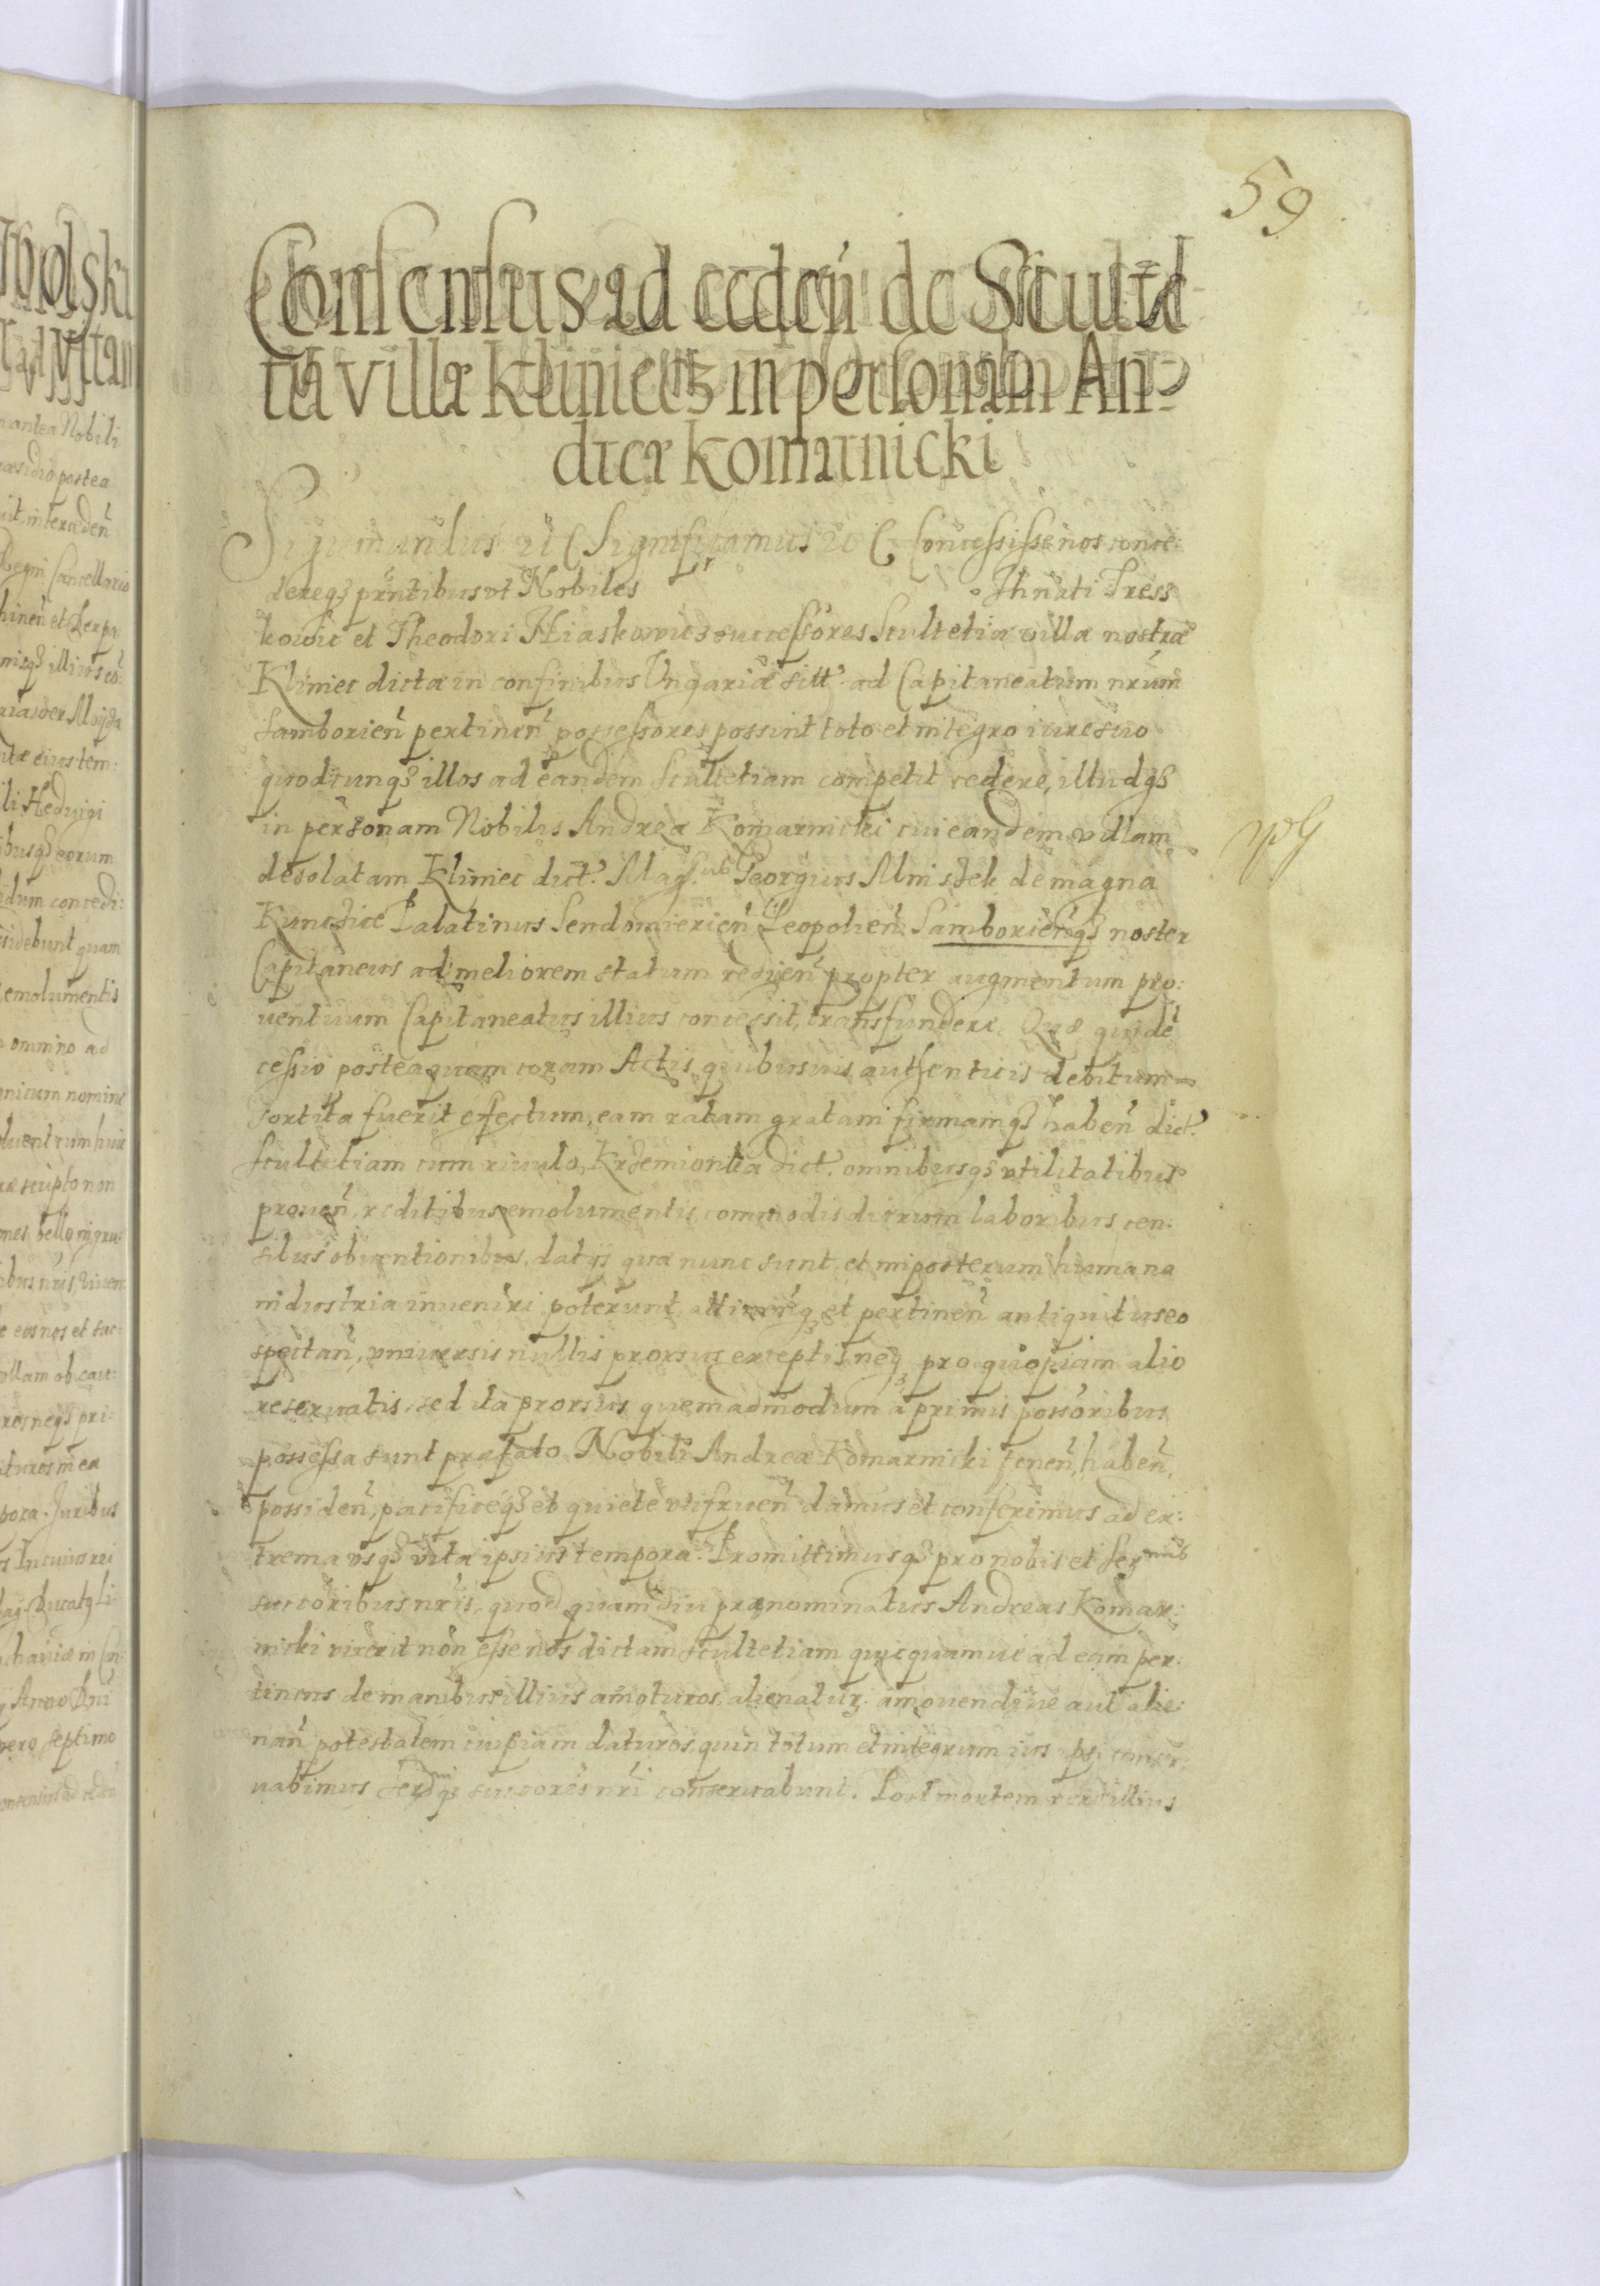 59
Consensus ad ceden̄ de Sculte
tia villæ Kliniecz in personam An-
dreæ Komarnicki
Sigismundus etc Significamus etc Concessisse nos conce:
dereq3 pr̄ntibus ut Nobiles Ihnati Iress
kowic et Theodori Hiaskowicz successores Scultetiæ villæ nostræ
Kliniec dictæ in confinibus Ungariæ sitt. ad Capitaneatum nr̄um
Samborien̄ pertinen̄ possessores possint toto et integro iure suo
quodcunq3 illos ad eandem scultetiam competit cedere, illudq3
in personam Nobilis Andreæ Komarnicki cui eandem villam
desolatam Kliniec dict. Mag.cus Georgius Mnisżek de magna
Kunczice Palatinus Sendomierien̄ Leopolien̄ Samborien̄q3 noster
Capitaneus ad meliorem statum redigen̄ propter augmentum pro:
uentuum Capitaneatus illius concessit, transfundere. Quæ quidē
cessio posteaquam coram Actis quibusuis authenticis debitum
sortita fuerit effectum, eam ratam gratam firmamq3 haben̄ dict.
scultetiam cum riuulo Krzemionka dict. omnibusq3 utilitatibus
prouen̄, reditibus emolumentis commodis dierum laboribus cen:
sibus obuentionibus, datijs quæ nunc sunt et in posterum humana
industria inueniri poterunt, attinen̄q3 et pertinen̄ antiquitus eo
spectan̄, uniuersis nullis prorsus exceptis neq3 pro quopiam alio
reseruatis, sed ita prorsus quemadmodum a primis possōribus
possessa sunt præfato Nobili Andreæ Komarnicki tenen̄, haben̄,
possiden̄, pacificeq3 et quiete utifruen̄ damus et conferimus ad ex:
trema usq3 vitæ ipsius tempora. Promittimusq3 pro nobis et Ser.mis
succōribus nr̄is, quod quamdiu prænominatus Andreas Komar:
nicki vixerit non esse nos dictam scultetiam quicquamue ad eam per:
tinens de manibus illius amoturos, alienatur. amouendiue aut alie:
nan̄ potestatem cuipiam daturos, quin totum et integrum ius ipsi conser:
uabimus Ser.miq3 succores nr̄i conseruabunt. Post mortem vero illius